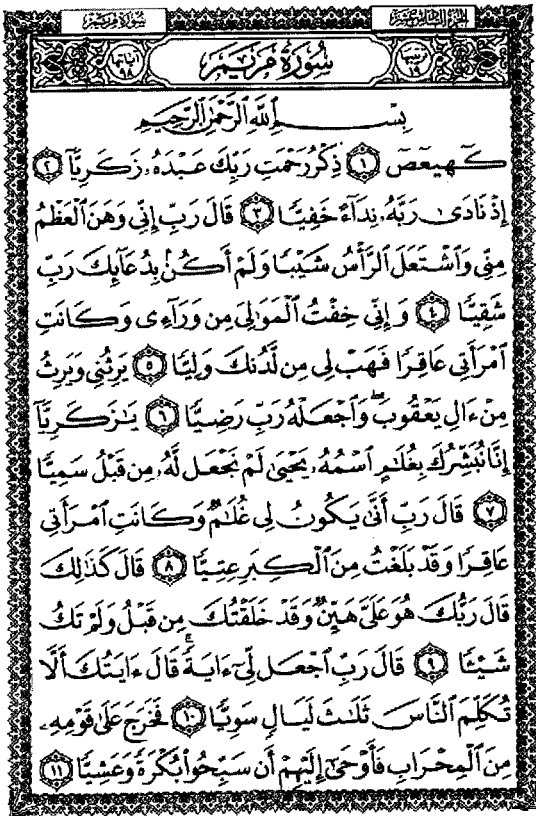 سُورَةُ مَرْيَمَ
الجزء السادس عشر
ترتيبها ١٩
سُورَةُ مَرْيَمَ
آياتها ٩٨
بِسْمِ ٱللَّهِ ٱلرَّحْمَٰنِ ٱلرَّحِيمِ
كٓهيعٓصٓ ١ ذِكْرُ رَحْمَتِ رَبِّكَ عَبْدَهُۥ زَكَرِيَّآ ٢
إِذْ نَادَىٰ رَبَّهُۥ نِدَآءً خَفِيًّا ٣ قَالَ رَبِّ إِنِّى وَهَنَ ٱلْعَظْمُ
مِنِّى وَٱشْتَعَلَ ٱلرَّأْسُ شَيْبًا وَلَمْ أَكُنۢ بِدُعَآئِكَ رَبِّ
شَقِيًّا ٤ وَإِنِّى خِفْتُ ٱلْمَوَٰلِىَ مِن وَرَآءِى وَكَانَتِ
ٱمْرَأَتِى عَاقِرًا فَهَبْ لِى مِن لَّدُنكَ وَلِيًّا ٥ يَرِثُنِى وَيَرِثُ
مِنْ ءَالِ يَعْقُوبَ ۖ وَٱجْعَلْهُ رَبِّ رَضِيًّا ٦ يَٰزَكَرِيَّآ
إِنَّا نُبَشِّرُكَ بِغُلَٰمٍ ٱسْمُهُۥ يَحْيَىٰ لَمْ نَجْعَل لَّهُۥ مِن قَبْلُ سَمِيًّا
٧ قَالَ رَبِّ أَنَّىٰ يَكُونُ لِى غُلَٰمٌ وَكَانَتِ ٱمْرَأَتِى
عَاقِرًا وَقَدْ بَلَغْتُ مِنَ ٱلْكِبَرِ عِتِيًّا ٨ قَالَ كَذَٰلِكَ
قَالَ رَبُّكَ هُوَ عَلَىَّ هَيِّنٌ وَقَدْ خَلَقْتُكَ مِن قَبْلُ وَلَمْ تَكُ
شَيْـًٔا ٩ قَالَ رَبِّ ٱجْعَل لِّىٓ ءَايَةً ۚ قَالَ ءَايَتُكَ أَلَّا
تُكَلِّمَ ٱلنَّاسَ ثَلَٰثَ لَيَالٍ سَوِيًّا ١٠ فَخَرَجَ عَلَىٰ قَوْمِهِۦ
مِنَ ٱلْمِحْرَابِ فَأَوْحَىٰٓ إِلَيْهِمْ أَن سَبِّحُوا۟ بُكْرَةً وَعَشِيًّا ١١